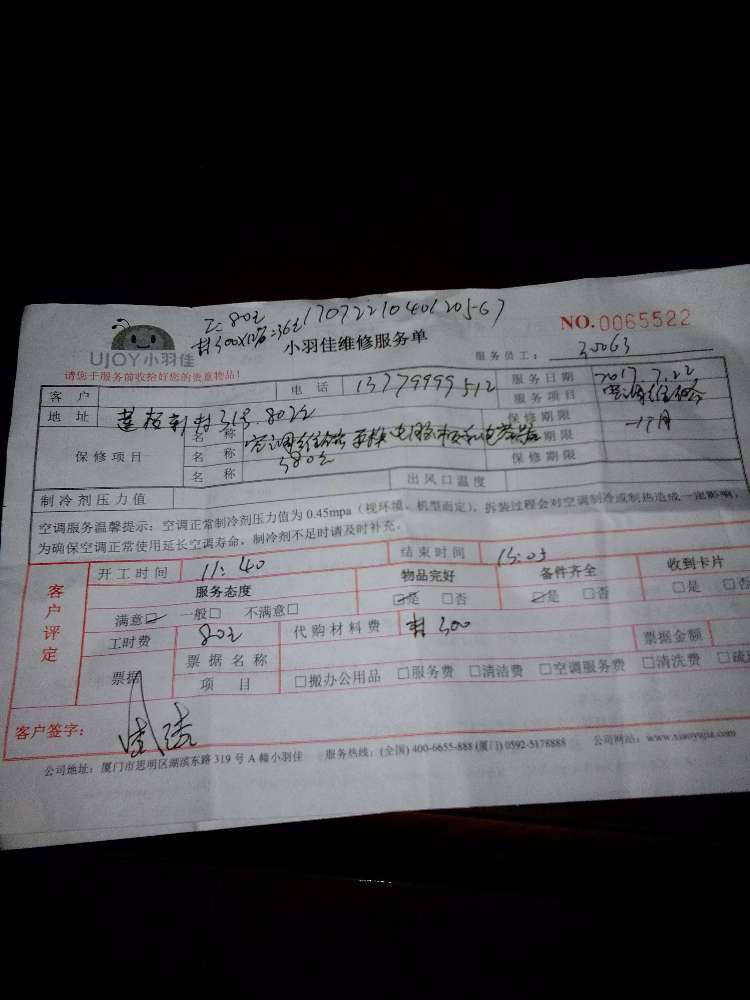 工=80元 17072210401205-67
材300X12%=36元
NO.0065522
UJOY小羽佳
小羽佳维修服务单
服务员工: 30063
请您于服务前收拾好您的贵重物品!
客户 电话 13779999512 服务日期 2017.7.22
地址 莲板新村31号.802室 服务项目 空调维修
保修项目 名称 空调维修 更换电脑板和电容器 保修期限 一个月
名称 380元 保修期限
名称 保修期限
制冷剂压力值 出风口温度
空调服务温馨提示:空调正常制冷剂压力值为0.45mpa(视环境、机型而定),拆装过程会对空调制冷或制热造成一定影响,
为确保空调正常使用延长空调寿命,制冷剂不足时请及时补充。
客户评定
开工时间 11:40 结束时间 15:05
服务态度 物品完好 备件齐全 收到卡片
满意☑ 一般□ 不满意□ ☑是 □否 ☑是 □否 □是 □否
工时费 80元 代购材料费 材300
票据 票据名称 票据金额
项目 □搬办公用品 □服务费 □清洁费 □空调服务费 □清洗费 □疏
客户签字:
公司地址:厦门市思明区湖滨东路319号A幢小羽佳 服务热线:(全国)400-6655-888(厦门)0592-5178888 公司网站:www.xiaoyujia.com